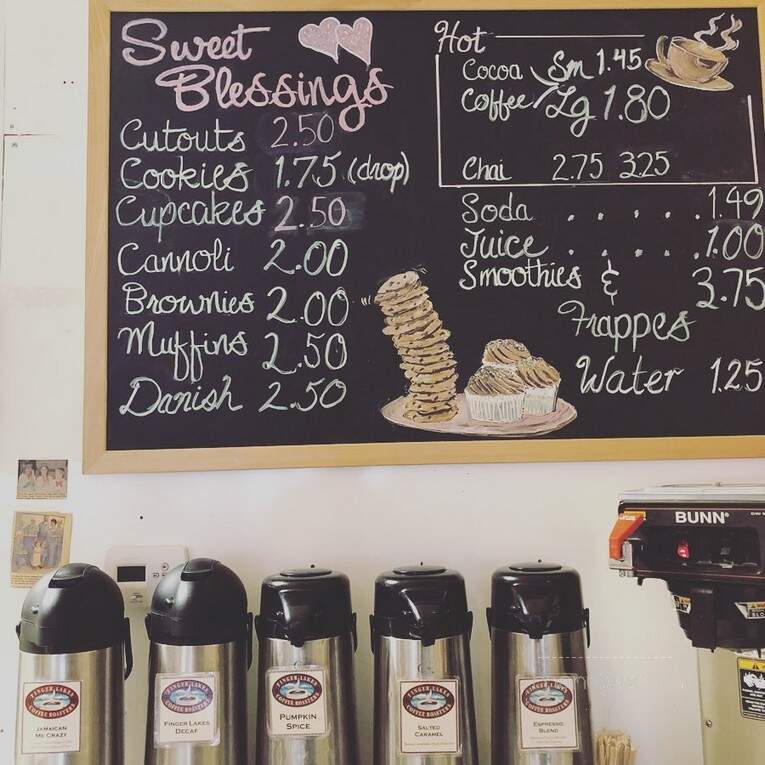 Sweet
Blessings
Cutouts 2.50
Cookies 1.75 (drop)
Cupcakes 2.50
Cannoli 2.00
Brownies 2.00
Muffins 2.50
Danish 2.50
Hot
Cocoa Sm 1.45
Coffee Lg 1.80
Chai 2.75 3.25
Soda . . . . . 1.49
Juice . . . . . 1.00
Smoothies & 3.75
Frappes
Water 1.25
BUNN
FINGER LAKES
COFFEE ROASTERS
JAMAICAN
ME CRAZY
FINGER LAKES
COFFEE ROASTERS
FINGER LAKES
DECAF
FINGER LAKES
COFFEE ROASTERS
PUMPKIN
SPICE
FINGER LAKES
COFFEE ROASTERS
SALTED
CARAMEL
FINGER LAKES
COFFEE ROASTERS
ESPRESSO
BLEND